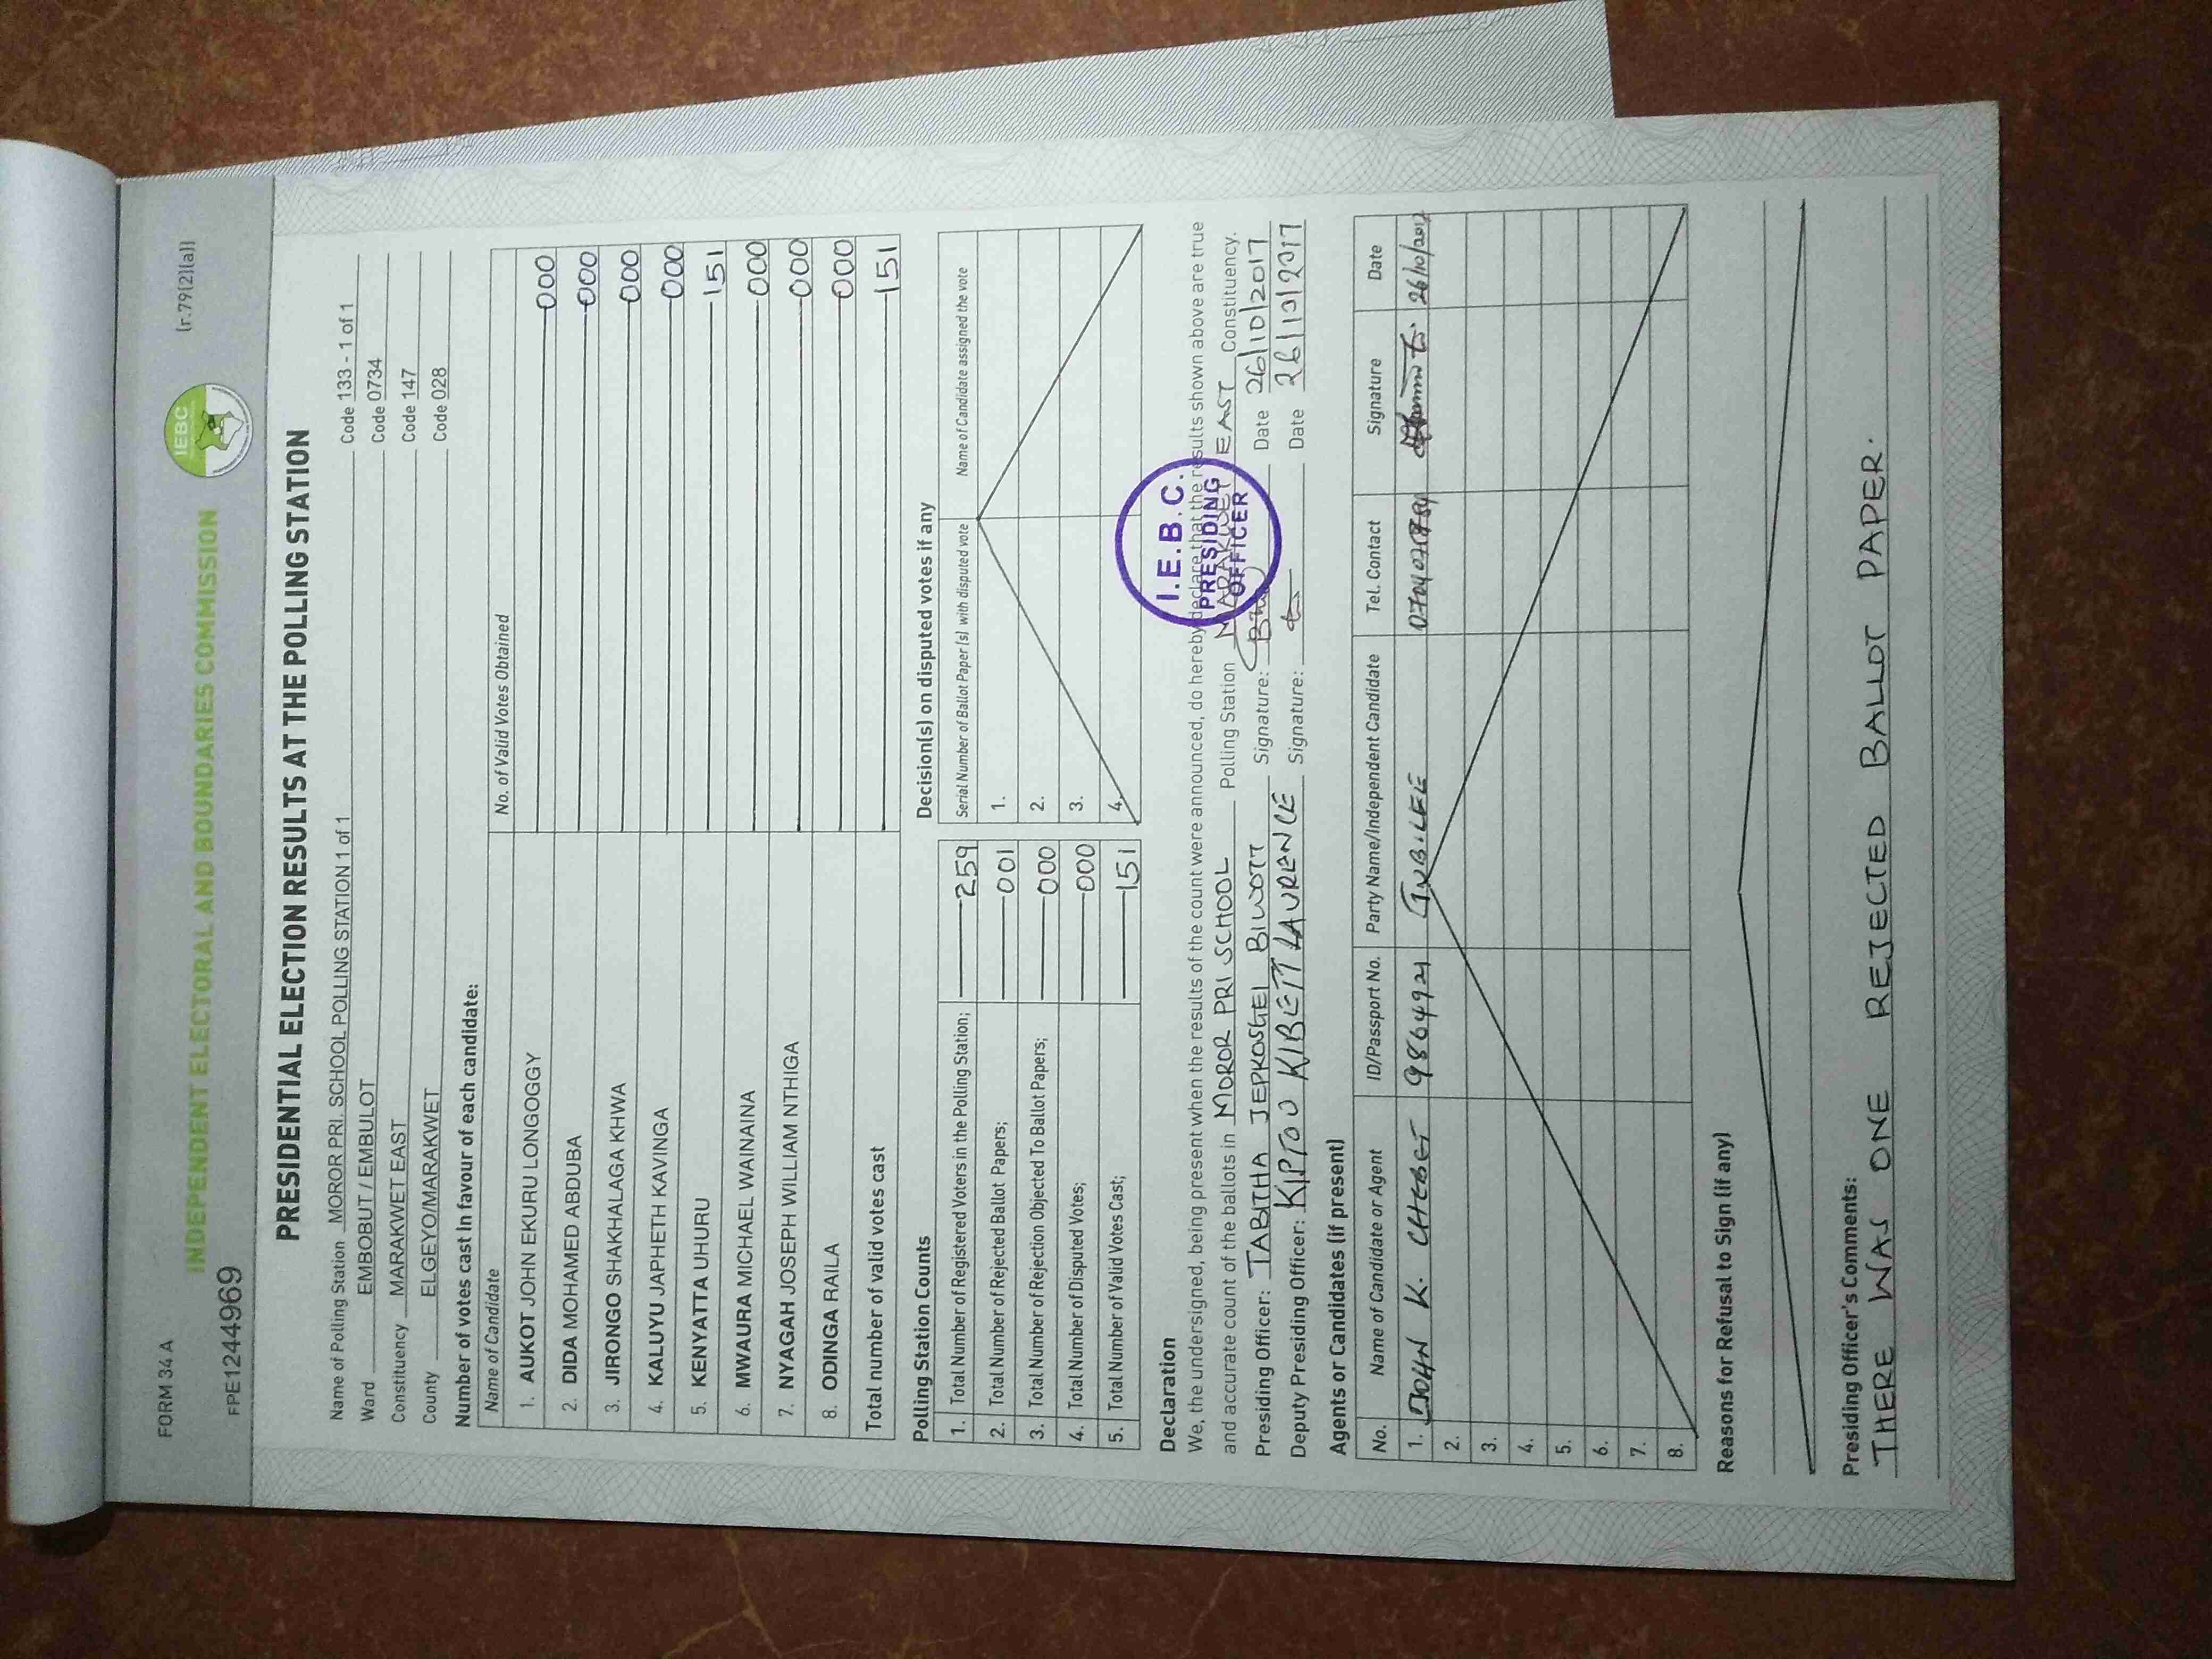 FORM 34 A
(r.79(2)(a))
INDEPENDENT ELECTORAL AND BOUNDARIES COMMISSION
IEBC
FPE1244969
PRESIDENTIAL ELECTION RESULTS AT THE POLLING STATION
Name of Polling Station MOROR PRI. SCHOOL POLLING STATION 1 of 1 Code 133 - 1 of 1
Ward EMBOBUT / EMBULOT Code 0734
Constituency MARAKWET EAST Code 147
County ELGEYO/MARAKWET Code 028
Number of votes cast in favour of each candidate:
Name of Candidate No. of Valid Votes Obtained
1. AUKOT JOHN EKURU LONGOGGY 000
2. DIDA MOHAMED ABDUBA 000
3. JIRONGO SHAKHALAGA KHWA 000
4. KALUYU JAPHETH KAVINGA 000
5. KENYATTA UHURU 151
6. MWAURA MICHAEL WAINAINA 000
7. NYAGAH JOSEPH WILLIAM NTHIGA 000
8. ODINGA RAILA 000
Total number of valid votes cast 151
Polling Station Counts
1. Total Number of Registered Voters in the Polling Station; 259
2. Total Number of Rejected Ballot Papers; 001
3. Total Number of Rejection Objected To Ballot Papers; 000
4. Total Number of Disputed Votes; 000
5. Total Number of Valid Votes Cast; 151
Decision(s) on disputed votes if any
Serial Number of Ballot Paper (s) with disputed vote Name of Candidate assigned the vote
1.
2.
3.
4.
Declaration
We, the undersigned, being present when the results of the count were announced, do hereby declare that the results shown above are true
and accurate count of the ballots in MOROR PRI SCHOOL Polling Station MARAKWET EAST Constituency.
Presiding Officer: TABITHA JEPKOSGEI BIWOTT Signature: Date 26/10/2017
Deputy Presiding Officer: KIPTOO KIBETT LAURENCE Signature: Date 26/10/2017
I.E.B.C.
PRESIDING
OFFICER
Agents or Candidates (if present)
No. Name of Candidate or Agent ID/Passport No. Party Name/Independent Candidate Tel. Contact Signature Date
1. JOHN K. CHEBET 9864921 JUBILEE 26/10/2017
2.
3.
4.
5.
6.
7.
8.
Reasons for Refusal to Sign (if any)
Presiding Officer's Comments:
THERE WAS ONE REJECTED BALLOT PAPER.